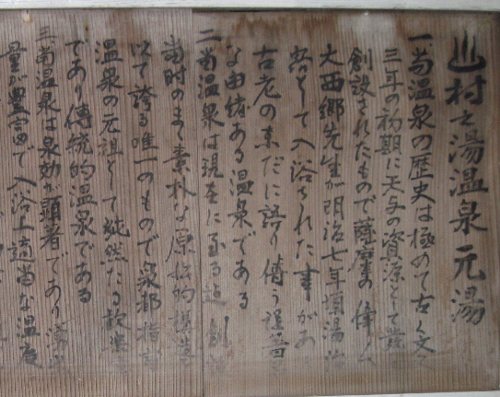 村之湯温泉元湯
一、当温泉の歴史は極めて古く文久
三年の初期に天与の資源として発
創設されたもので薩摩の偉人
大西郷先生が明治七年頃湯治
客として入浴された事があ
古老の未だに語り傳う
な由緒ある温泉である
二、当温泉は現在に至る迄創
当時のまゝ素朴な原始的構造
以て誇る唯一のもので泉都指宿
温泉の元祖として純然たる
であり傳統的温泉である
三、当温泉は泉効が顕著であり
量が豊富で入浴上適当な温度